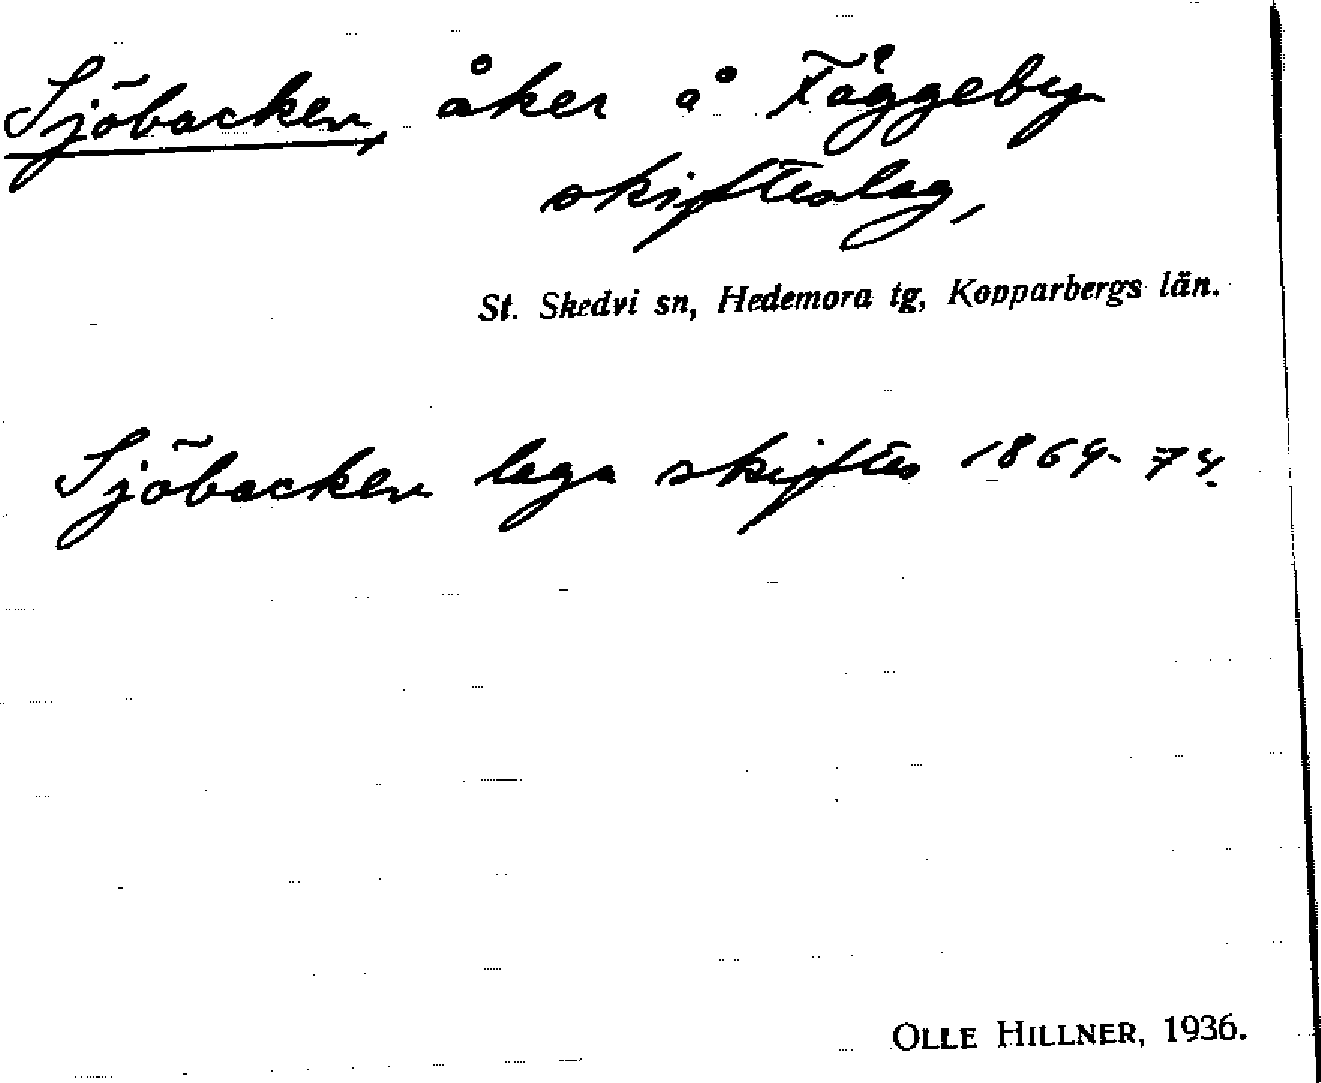 Sjöbacken, åker å Fäggeby
skifteslag,
St. Skedvi sn, Hedemora tg, Kopparbergs län.
Sjöbacken laga skiftes 1869-74.
OLLE HILLNER, 1936.